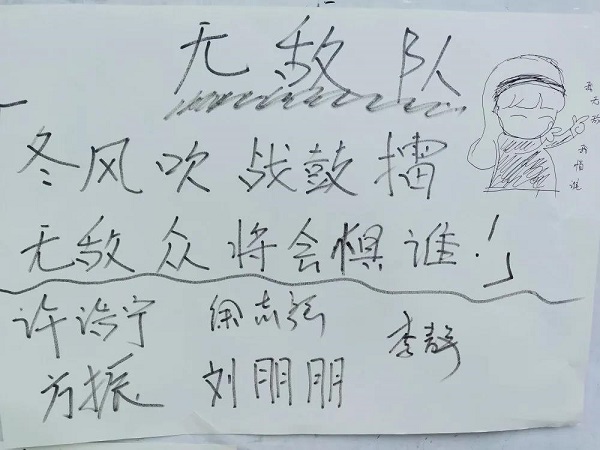 无敌队
冬风吹战鼓擂
无敌众将会惧谁!
许浩宁 徐志强 李静
方振 刘朋朋
吾无敌
我怕谁